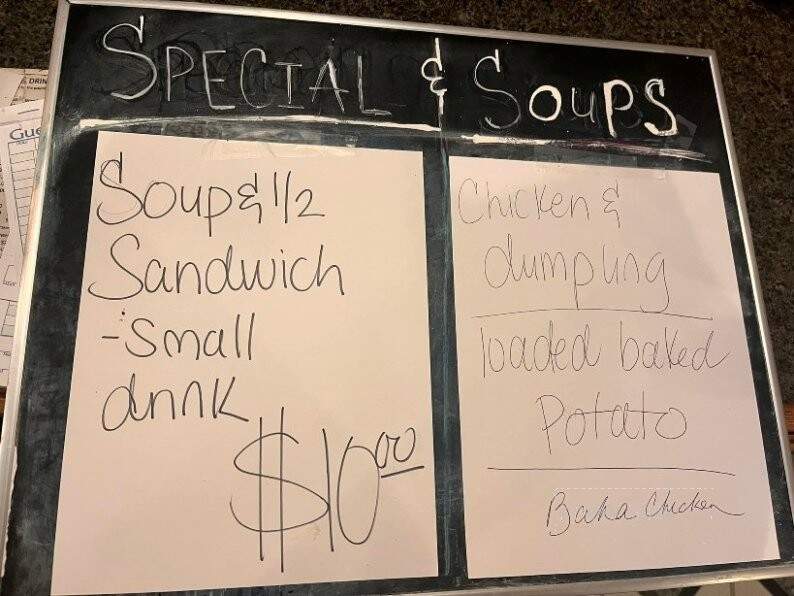 SPECIAL & SOUPS
Soup & 1/2
Sandwich
-Small
drink
$10.00
Chicken &
dumpling
loaded baked
Potato
Baha Chicken
DRIN
Gue